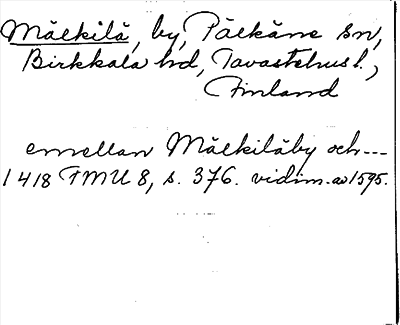 Mälkilä, by, Pälkäne sn,
Birkkala hd, Tavastehus l.,
Finland
emellan Mälkiläby och ---
1418 FMU 8, s. 376. vidim. av 1595.